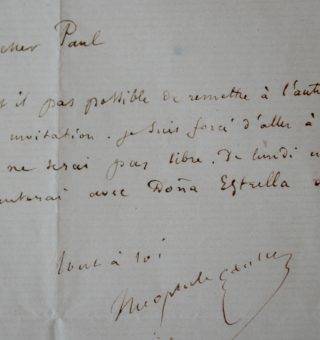 cher Paul
il pas possible de remettre à l'autre
invitation. je suis forcé d'aller à
ne serai pas libre. De lundi en
avec Doña Estrella
tout à toi
Théophile Gautier